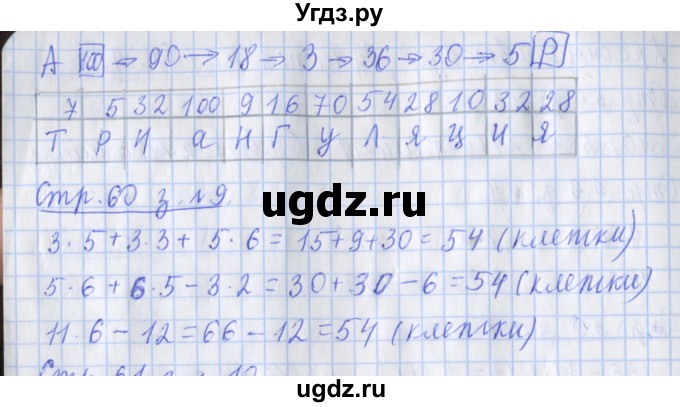 Угдз.ру
А 100 → 90 → 18 → 3 → 36 → 30 → 5 Р
7 5 32 100 9 16 70 54 28 10 32 28
Т Р И А Н Г У Л Я Ц И Я
Стр. 60 з. №9.
3·5+3·3+ 5·6=15+9+30=54 (клетки)
5·6+6·5-3·2=30+30-6=54(клетки)
11·6-12=66-12=54 (клетки)
ugdz.ru
ugdz.ru